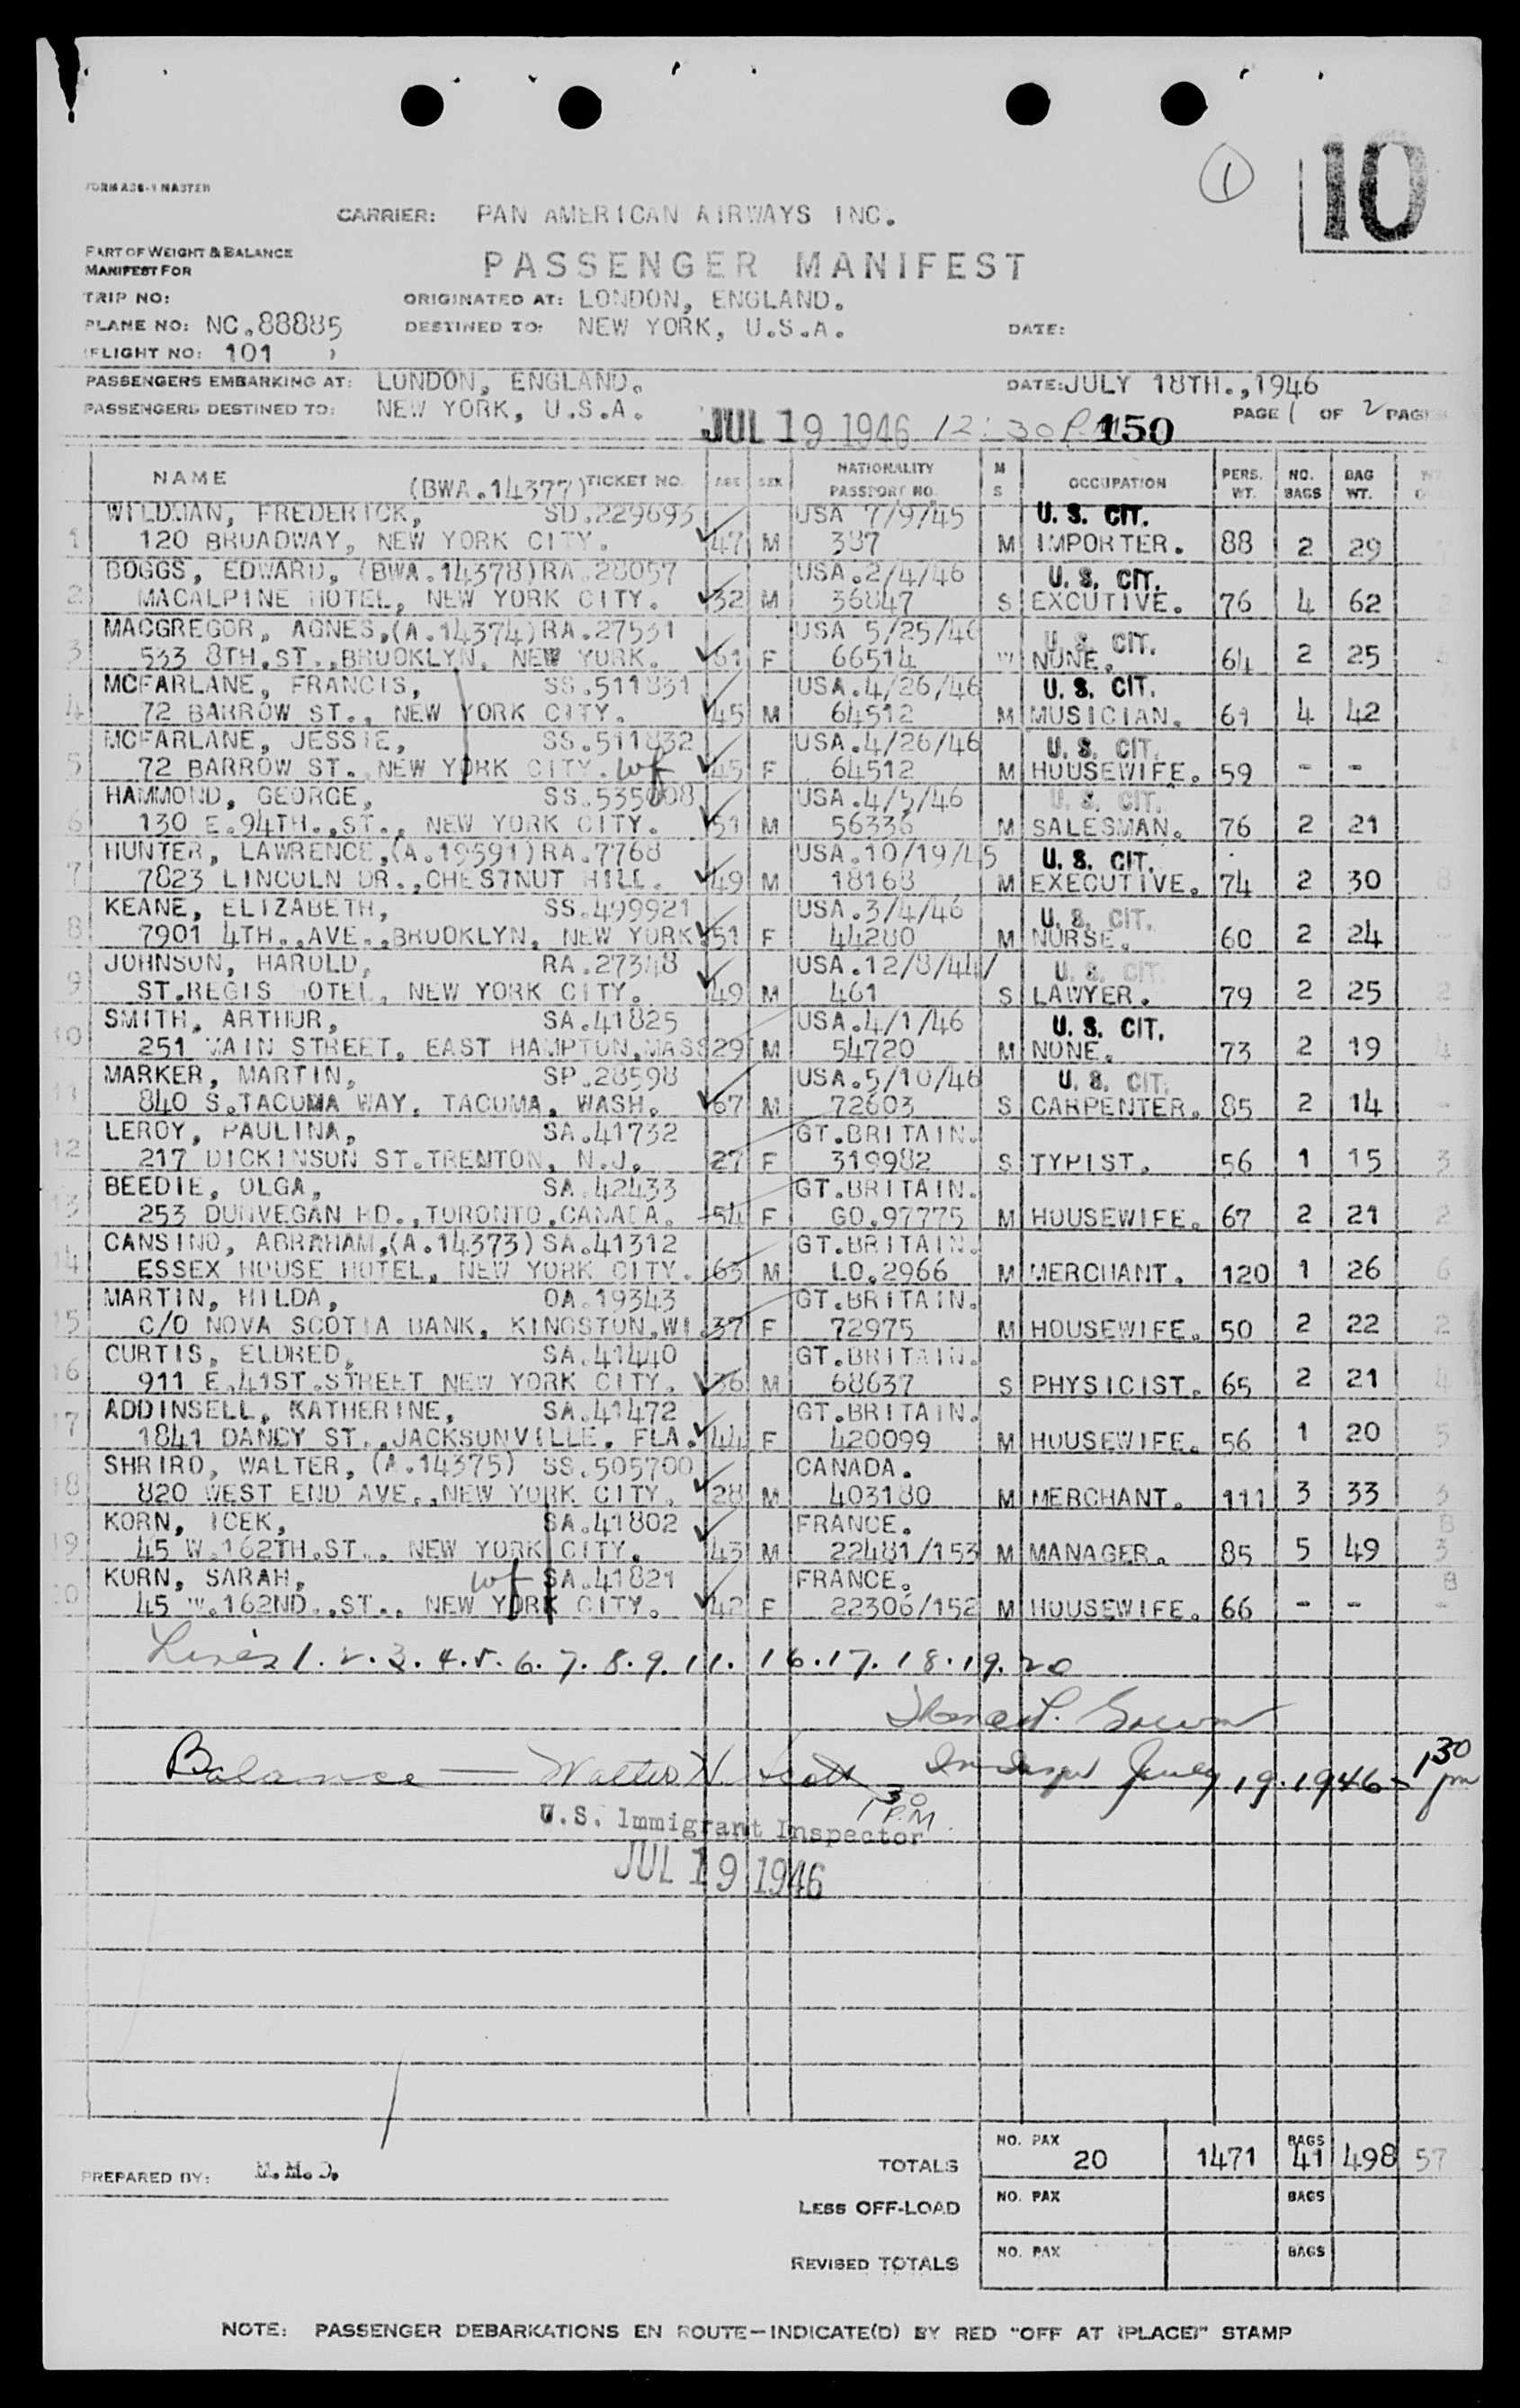 ①
10
FORM A36-1 MASTER
CARRIER: PAN AMERICAN AIRWAYS INC.
PART OF WEIGHT & BALANCE
MANIFEST FOR
PASSENGER MANIFEST
TRIP NO: ORIGINATED AT: LONDON, ENGLAND.
PLANE NO: NC.88885 DESTINED TO: NEW YORK, U.S.A. DATE:
(FLIGHT NO: 101 )
PASSENGERS EMBARKING AT: LONDON, ENGLAND. DATE: JULY 18TH.,1946
PASSENGERS DESTINED TO: NEW YORK, U.S.A. PAGE 1 OF 2 PAGES
JUL 19 1946 12:30 P.M 150
NAME (BWA.14377) TICKET NO. AGE SEX NATIONALITY PASSPORT NO. M S OCCUPATION PERS. WT. NO. BAGS BAG WT.
WILDMAN, FREDERICK, SD.229693 USA 7/9/45 U. S. CIT.
1 120 BROADWAY, NEW YORK CITY. 47 M 387 M IMPORTER. 88 2 29
BOGGS, EDWARD, (BWA.14378) RA.28057 USA.2/4/46 U. S. CIT.
2 MACALPINE HOTEL, NEW YORK CITY. 32 M 36847 S EXCUTIVE. 76 4 62
MACGREGOR, AGNES,(A.14374) RA.27531 USA 5/25/46 U. S. CIT.
3 533 8TH.ST.,BROOKLYN, NEW YORK. 61 F 66514 W NONE. 64 2 25
MCFARLANE, FRANCIS, SS.511831 USA.4/26/46 U. S. CIT.
4 72 BARROW ST., NEW YORK CITY. 45 M 64512 M MUSICIAN. 61 4 42
MCFARLANE, JESSIE, SS.511832 USA.4/26/46 U. S. CIT.
5 72 BARROW ST. NEW YORK CITY. wf 45 F 64512 M HOUSEWIFE. 59 - -
HAMMOND, GEORGE, SS.535008 USA.4/5/46 U. S. CIT.
6 130 E.94TH.,ST., NEW YORK CITY. 51 M 56336 M SALESMAN. 76 2 21
HUNTER, LAWRENCE,(A.19591) RA.7768 USA.10/19/45 U. S. CIT.
7 7823 LINCOLN DR.,CHESTNUT HILL. 49 M 18168 M EXECUTIVE. 74 2 30
KEANE, ELIZABETH, SS.499921 USA.3/4/46 U. S. CIT.
8 7901 4TH.,AVE.,BROOKLYN, NEW YORK. 51 F 44280 M NURSE. 60 2 24
JOHNSON, HAROLD, RA.27348 USA.12/8/44 U. S. CIT.
9 ST.REGIS HOTEL, NEW YORK CITY. 49 M 461 S LAWYER. 79 2 25
SMITH, ARTHUR, SA.41825 USA.4/1/46 U. S. CIT.
10 251 MAIN STREET, EAST HAMPTON,MASS 29 M 54720 M NONE. 73 2 19
MARKER, MARTIN, SP.28598 USA.5/10/46 U. S. CIT.
11 840 S.TACOMA WAY, TACOMA, WASH. 67 M 72603 S CARPENTER. 85 2 14
LEROY, PAULINA, SA.41732 GT.BRITAIN.
12 217 DICKINSON ST.TRENTON, N.J. 27 F 319982 S TYPIST. 56 1 15
BEEDIE, OLGA, SA.42433 GT.BRITAIN.
13 253 DUNVEGAN RD.,TORONTO,CANADA. 54 F GO.97775 M HOUSEWIFE. 67 2 21
CANSINO, ABRAHAM,(A.14373) SA.41312 GT.BRITAIN.
14 ESSEX HOUSE HOTEL, NEW YORK CITY. 63 M LO.2966 M MERCHANT. 120 1 26
MARTIN, HILDA, OA.19343 GT.BRITAIN.
15 C/O NOVA SCOTIA BANK, KINGSTON,WI. 37 F 72975 M HOUSEWIFE. 50 2 22
CURTIS, ELDRED, SA.41440 GT.BRITAIN.
16 911 E.41ST.STREET NEW YORK CITY. 36 M 68637 S PHYSICIST. 65 2 21
ADDINSELL, KATHERINE, SA.41472 GT.BRITAIN.
17 1841 DANCY ST.,JACKSONVILLE. FLA. 44 F 420099 M HOUSEWIFE. 56 1 20
SHRIRO, WALTER, (A.14375) SS.505700 CANADA.
18 820 WEST END AVE.,NEW YORK CITY. 28 M 403180 M MERCHANT. 111 3 33
KORN, ICEK, SA.41802 FRANCE.
19 45 W.162TH.ST., NEW YORK CITY. 43 M 22481/153 M MANAGER. 85 5 49
KORN, SARAH, wf SA.41821 FRANCE.
20 45 W.162ND.,ST., NEW YORK CITY. 42 F 22306/152 M HOUSEWIFE. 66 - -
Lines 1.2.3.4.5.6.7.8.9.11.16.17.18.19.20
Balance — Walter N. Scott July 19.1946 - 1 30 pm
1 30 P.M.
U.S. Immigrant Inspector
JUL 19 1946
PREPARED BY: M.M.D.
TOTALS NO. PAX 20 1471 BAGS 41 498 57
LESS OFF-LOAD NO. PAX BAGS
REVISED TOTALS NO. PAX BAGS
NOTE: PASSENGER DEBARKATIONS EN ROUTE—INDICATE(D) BY RED "OFF AT (PLACE)" STAMP